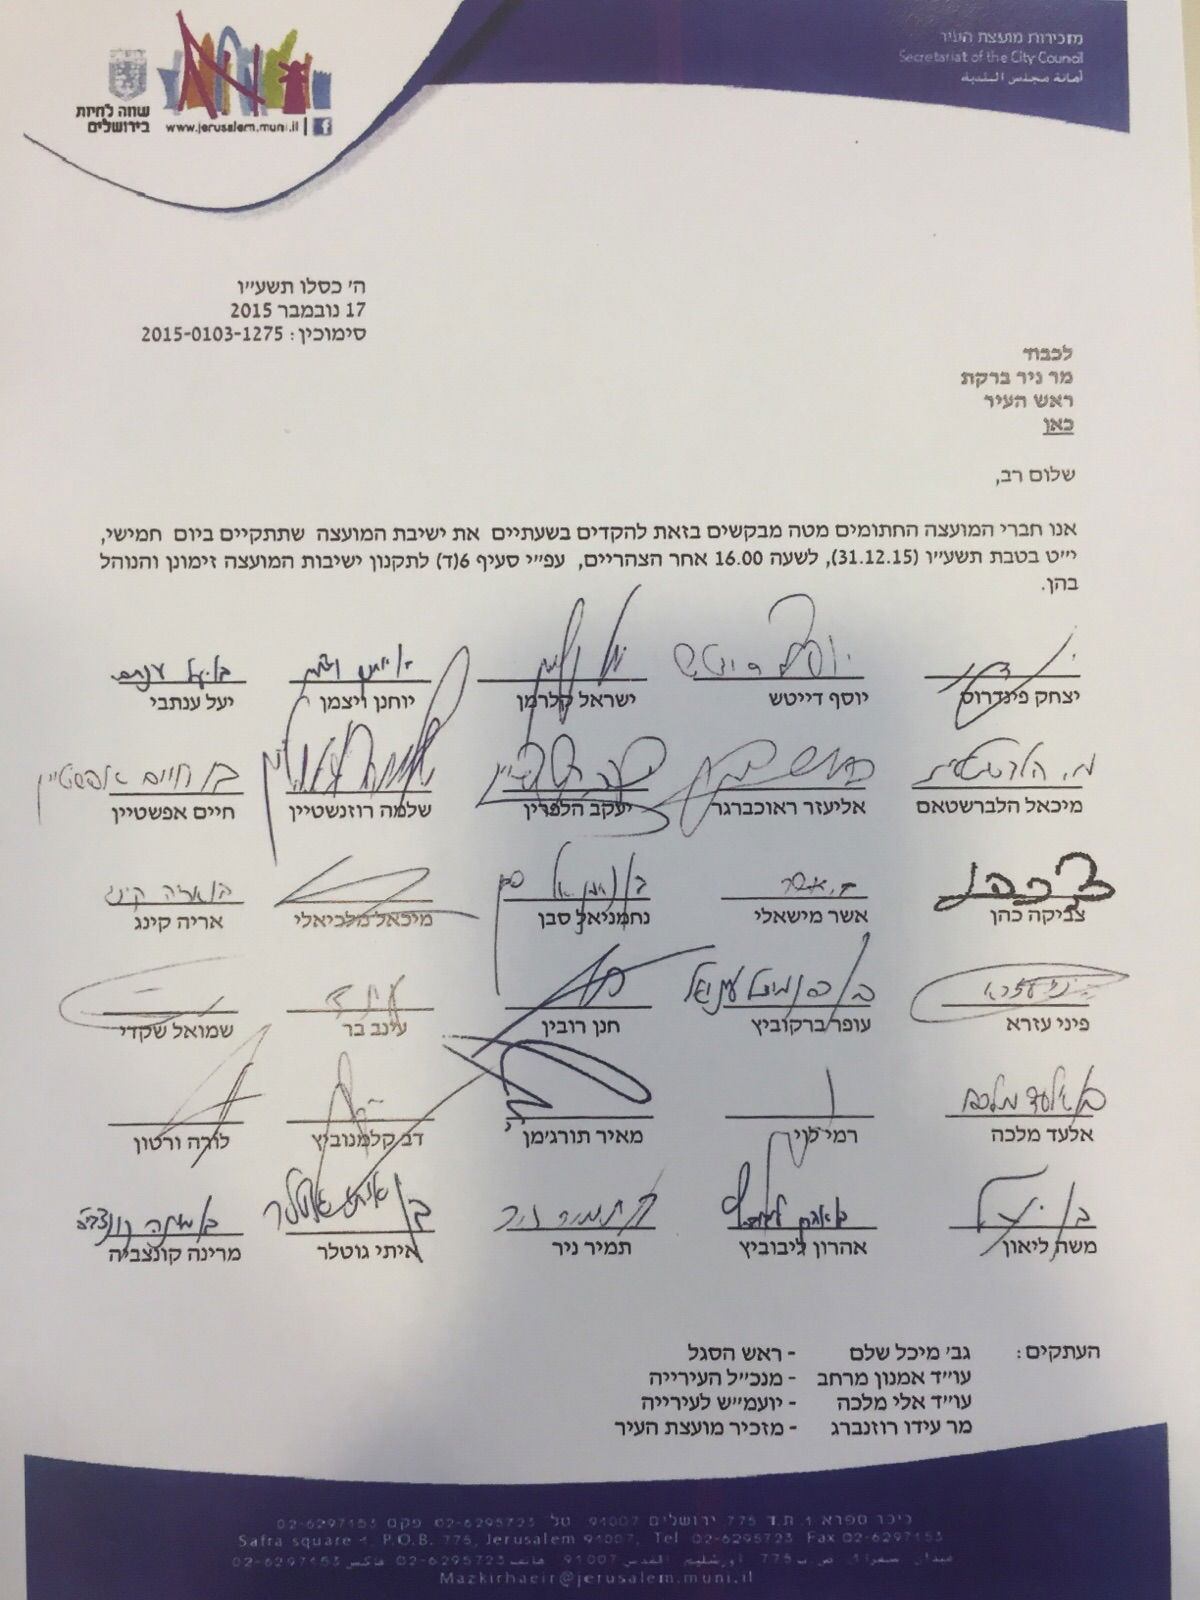 מזכירות מועצת העיר
Secretariat of the City Council
أمانة مجلس البلدية
שווה לחיות
בירושלים
www.jerusalem.muni.il
ה' כסלו תשע"ו
17 נובמבר 2015
סימוכין: 2015-0103-1275
לכבוד
מר ניר ברקת
ראש העיר
כאן
שלום רב,
אנו חברי המועצה החתומים מטה מבקשים בזאת להקדים בשעתיים את ישיבת המועצה שתתקיים ביום חמישי,
י"ט בטבת תשע"ו (31.12.15), לשעה 16.00 אחר הצהריים, עפ"י סעיף 6(ד) לתקנון ישיבות המועצה זימונן והנוהל
בהן.
יצחק פינדרוס יוסף דייטש ישראל קלרמן יוחנן ויצמן יעל ענתבי
מ. הלברשטאם בן חיים אפשטיין
מיכאל הלברשטאם אליעזר ראוכברגר יעקב הלפרין שלמה רוזנשטיין חיים אפשטיין
צביקה כהן אשר מישאלי נחמניאל סבן מיכאל מלכיאלי אריה קינג
פיני עזרא עופר ברקוביץ חנן רובין עינב בר שמואל שקדי
אלעד מלכה רמי לוי מאיר תורג'מן דב קלמנוביץ לורה ורטון
משה ליאון אהרון ליבוביץ תמיר ניר איתי גוטלר מרינה קונצביה
העתקים: גב' מיכל שלם - ראש הסגל
עו"ד אמנון מרחב - מנכ"ל העירייה
עו"ד אלי מלכה - יועמ"ש לעירייה
מר עידו רוזנברג - מזכיר מועצת העיר
כיכר ספרא 1 ת.ד 775 ירושלים 91007 טל 02-6295723 פקס 02-6297153
Safra square 1, P.O.B. 775, Jerusalem 91007, Tel 02-6295723 Fax 02-6297153
ميدان سفرا 1 ص.ب 775 أورشليم القدس 91007 هاتف 02-6295723 فاكس 02-6297153
Mazkirhaeir@jerusalem.muni.il